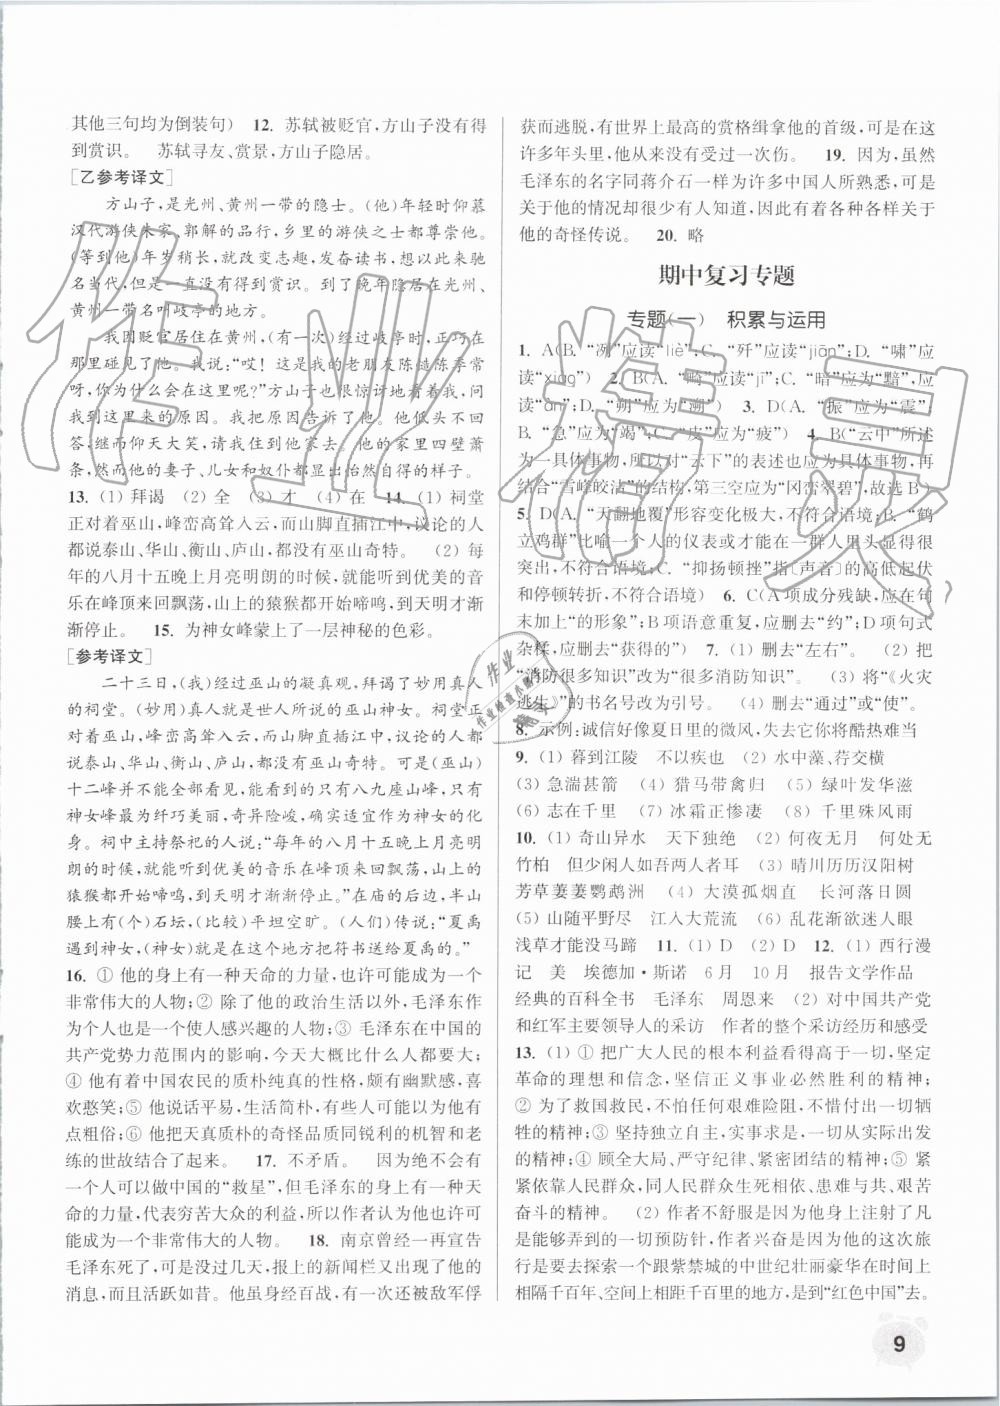 其他三句均为倒装句) 12. 苏轼被贬官,方山子没有得
到赏识。 苏轼寻友、赏景,方山子隐居。
[乙参考译文]
方山子,是光州、黄州一带的隐士。(他)年轻时仰慕
汉代游侠朱家、郭解的品行,乡里的游侠之士都尊崇他。
(等到他)年岁稍长,就改变志趣,发奋读书,想以此来驰名
当代,但是一直没有得到赏识。到了晚年隐居在光州、
黄州一带名叫岐亭的地方。
我因贬官居住在黄州,(有一次)经过岐亭时,正巧在
那里碰见了他。我说:“哎!这是我的老朋友陈慥陈季常
呀,你为什么会在这里呢?”方山子也很惊讶地看着我,问
我到这里来的原因。我把原因告诉了他。他低头不回
答,继而仰天大笑,请我住到他家去。他的家里四壁萧
条,然而他的妻子、儿女和奴仆都显出怡然自得的样子。
13. (1) 拜谒 (2) 全 (3) 才 (4) 在 14. (1) 祠堂
正对着巫山,峰峦高耸入云,而山脚直插江中,议论的人
都说泰山、华山、衡山、庐山,都没有巫山奇特。 (2) 每
年的八月十五晚上月亮明朗的时候,就能听到优美的音
乐在峰顶来回飘荡,山上的猿猴都开始啼鸣,到天明才渐
渐停止。 15. 为神女峰蒙上了一层神秘的色彩。
[参考译文]
二十三日,(我)经过巫山的凝真观,拜谒了妙用真人
的祠堂。(妙用)真人就是世人所说的巫山神女。祠堂正
对着巫山,峰峦高耸入云,而山脚直插江中,议论的人都
说泰山、华山、衡山、庐山,都没有巫山奇特。可是(巫山)
十二峰并不能全部看见,能看到的只有八九座山峰,只有
神女峰最为纤巧修美,奇异险峻,确实宜作为神女的化
身。祠中主持祭祀的人说:“每年的八月十五晚上月亮明
朗的时候,就能听到优美的音乐在峰顶来回飘荡,山上的
猿猴都开始啼鸣,到天明才渐渐停止。”在庙的后边,半山
腰上有(个)石坛,(比较)平坦空旷。(人们)传说:“夏禹
遇到神女,(神女)就是在这个地方把符书送给夏禹的。”
16. ① 他的身上有一种天命的力量,也许可能成为一个
非常伟大的人物;② 除了他的政治生活以外,毛泽东作
为个人也是一个使人感兴趣的人物;③ 毛泽东在中国的
共产党势力范围内的影响,今天大概比什么人都要大;
④ 他有着中国农民的质朴纯真的性格,颇有幽默感,喜
欢憨笑;⑤ 他说话平易,生活简朴,有些人可能以为他有
点粗俗;⑥ 他把天真质朴的奇怪品质同锐利的机智和老
练的世故结合了起来。 17. 不矛盾。 因为绝不会有一
个人可以做中国的“救星”,但毛泽东的身上有一种天
命的力量,代表穷苦大众的利益,所以作者认为他也许可
能成为一个非常伟大的人物。 18. 南京曾经一再宣告
毛泽东死了,可是没过几天,报上的新闻栏又出现了他的
消息,而且活跃如昔。他虽身经百战,有一次还被敌军俘
获而逃脱,有世界上最高的赏格缉拿他的首级,可是在这
许多年头里,他从来没有受过一次伤。 19. 因为,虽然
毛泽东的名字同蒋介石一样为许多中国人所熟悉,可是
关于他的情况却很少有人知道,因此有着各种各样关于
他的奇怪传说。 20. 略
期中复习专题
专题(一) 积累与运用
1. A(B. “冽”应读“liè”;C. “歼”应读“jiān”;D. “啸”应
读“xiào”) 2. B(A. “畸”应读“jī”;C. “暗”应为“黯”,应
读“àn”;D. “朔”应为“溯”) 3. D(A. “振”应为“震”;
B. “急”应为“竭”;C. “皮”应为“疲”) 4. B(“云中”所述
为一具体事物,所以对“云下”的表述也应为具体事物,再
结合“雪峰皎洁”的结构,第三空应为“冈峦翠碧”,故选B)
5. D(A. “天翻地覆”形容变化极大,不符合语境;B. “鹤
立鸡群”比喻一个人的仪表或才能在一群人里头显得很
突出,不符合语境;C. “抑扬顿挫”指〔声音〕的高低起伏
和停顿转折,不符合语境) 6. C(A项成分残缺,应在句
末加上“的形象”;B项语意重复,应删去“约”;D项句式
杂糅,应删去“获得的”) 7. (1) 删去“左右”。 (2) 把
“消防很多知识”改为“很多消防知识”。 (3) 将“《火灾
逃生》”的书名号改为引号。 (4) 删去“通过”或“使”。
8. 示例:诚信好像夏日里的微风,失去它你将酷热难当
9. (1) 暮到江陵 不以疾也 (2) 水中藻、荇交横
(3) 急湍甚箭 (4) 猎马带禽归 (5) 绿叶发华滋
(6) 志在千里 (7) 冰霜正惨凄 (8) 千里殊风雨
10. (1) 奇山异水 天下独绝 (2) 何夜无月 何处无
竹柏 但少闲人如吾两人者耳 (3) 晴川历历汉阳树
芳草萋萋鹦鹉洲 (4) 大漠孤烟直 长河落日圆
(5) 山随平野尽 江入大荒流 (6) 乱花渐欲迷人眼
浅草才能没马蹄 11. (1) D (2) D 12. (1) 西行漫
记 美 埃德加·斯诺 6月 10月 报告文学作品
经典的百科全书 毛泽东 周恩来 (2) 对中国共产党
和红军主要领导人的采访 作者的整个采访经历和感受
13. (1) ① 把广大人民的根本利益看得高于一切,坚定
革命的理想和信念,坚信正义事业必然胜利的精神;
② 为了救国救民,不怕任何艰难险阻,不惜付出一切牺
牲的精神;③ 坚持独立自主,实事求是,一切从实际出发
的精神;④ 顾全大局、严守纪律、紧密团结的精神;⑤ 紧
紧依靠人民群众,同人民群众生死相依、患难与共、艰苦
奋斗的精神。 (2) 作者不舒服是因为身上注射了凡是
能够弄到的一切预防针,作者兴奋是因为他的这次旅
行是去探索一个跟紫禁城的中世纪壮丽豪华在时间上
相隔千百年、空间上相距千百里的地方,是到“红色中国”去。
9